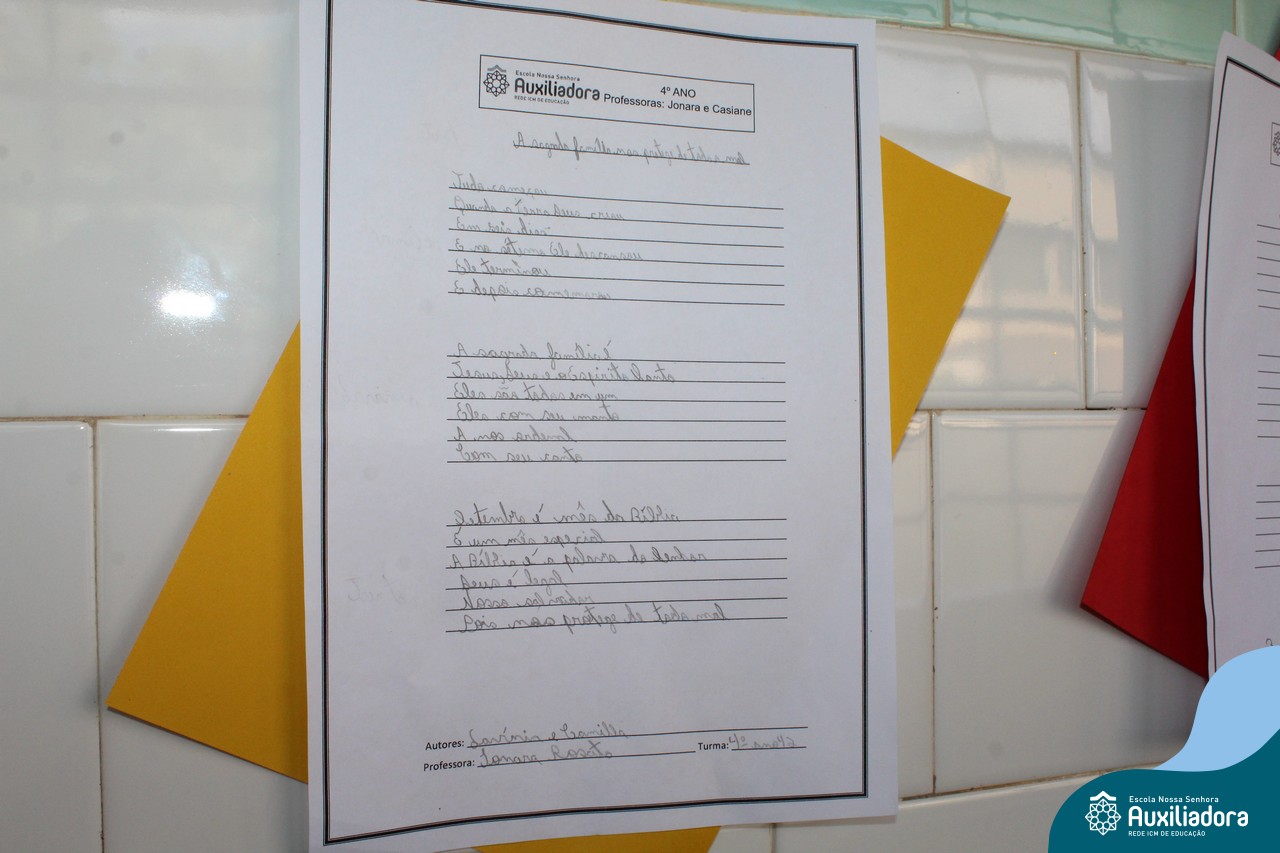 Escola Nossa Senhora
Auxiliadora
REDE ICM DE EDUCAÇÃO
4º ANO
Professoras: Jonara e Casiane
A sagrada família nos protege de todo o mal
Tudo começou
Quando a terra Deus criou
Em seis dias
E no sétimo Ele descansou
Ele terminou
E depois comemorou
A sagrada família é
Jesus, Deus e o Espirito Santo
Eles são todos em um
Eles com seu manto
A nos
Com seu canto
Setembro é mês da Bíblia
É um mês especial
A Bíblia é a palavra do Senhor
Deus é legal
Nosso salvador
Pois nos protege de todo mal
Autores: Lavínia e Camilla
Professora: Jonara Rosato
Turma: 4º ano
Escola Nossa Senhora
Auxiliadora
REDE ICM DE EDUCAÇÃO